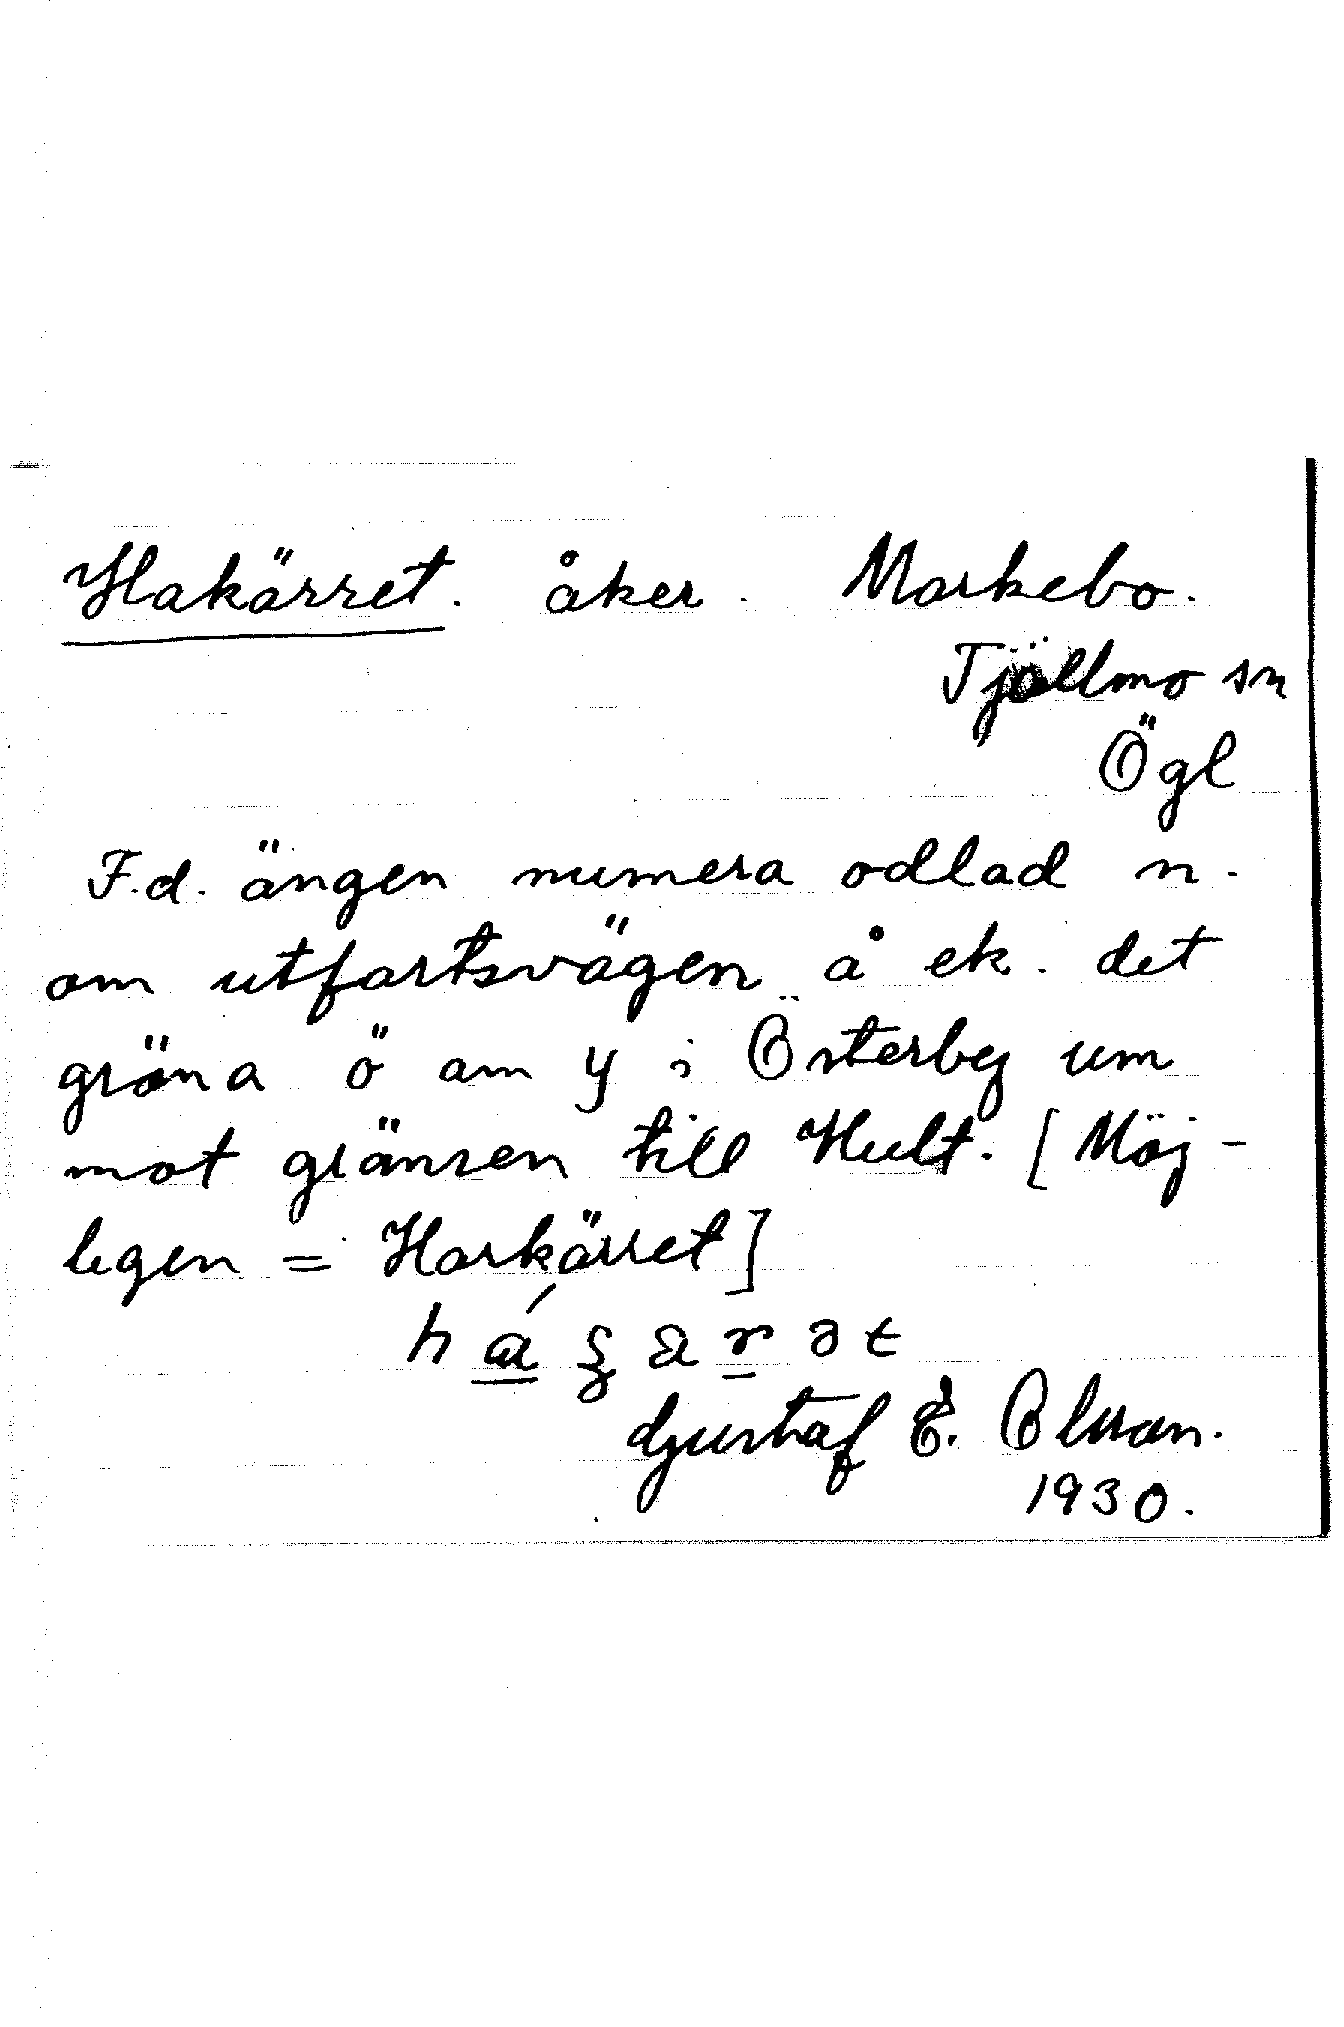 Hakärret. åker. Markebo.
Tjällmo sn
Ögl
F.d. ängen numera odlad n.
om utfartsvägen å ek. det
gröna ö om y i Österby um
mot gränsen till Hult. [Möj-
ligen = Harkärret]
Gustaf E.
1930.